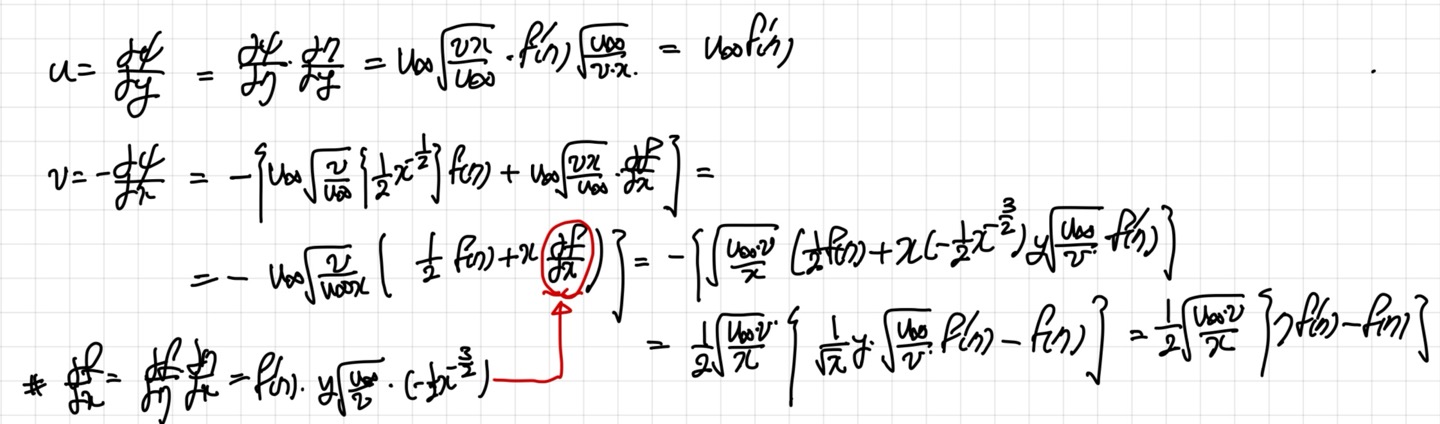 u = ∂ψ/∂y = ∂ψ/∂η · ∂η/∂y = u∞ √(νx/u∞) · f'(η) √(u∞/ν·x) = u∞ f'(η)
v = -∂ψ/∂x = -{u∞ √(ν/u∞) {1/2 x^(-1/2)} f(η) + u∞ √(νx/u∞) · ∂f/∂x} =
= - u∞ √(ν/u∞x) ( 1/2 f(η) + x ∂f/∂x )} = -{√(u∞·ν/x) (1/2 f(η) + x(-1/2 x^(-3/2)) y √(u∞/ν) f'(η)}
= 1/2 √(u∞ν/x) { 1/√x y· √(u∞/ν) f'(η) - f(η)} = 1/2 √(u∞·ν/x) {η f'(η) - f(η)}
* ∂f/∂x = ∂f/∂η ∂η/∂x = f'(η) · y √(u∞/ν) · (-1/2 x^(-3/2))